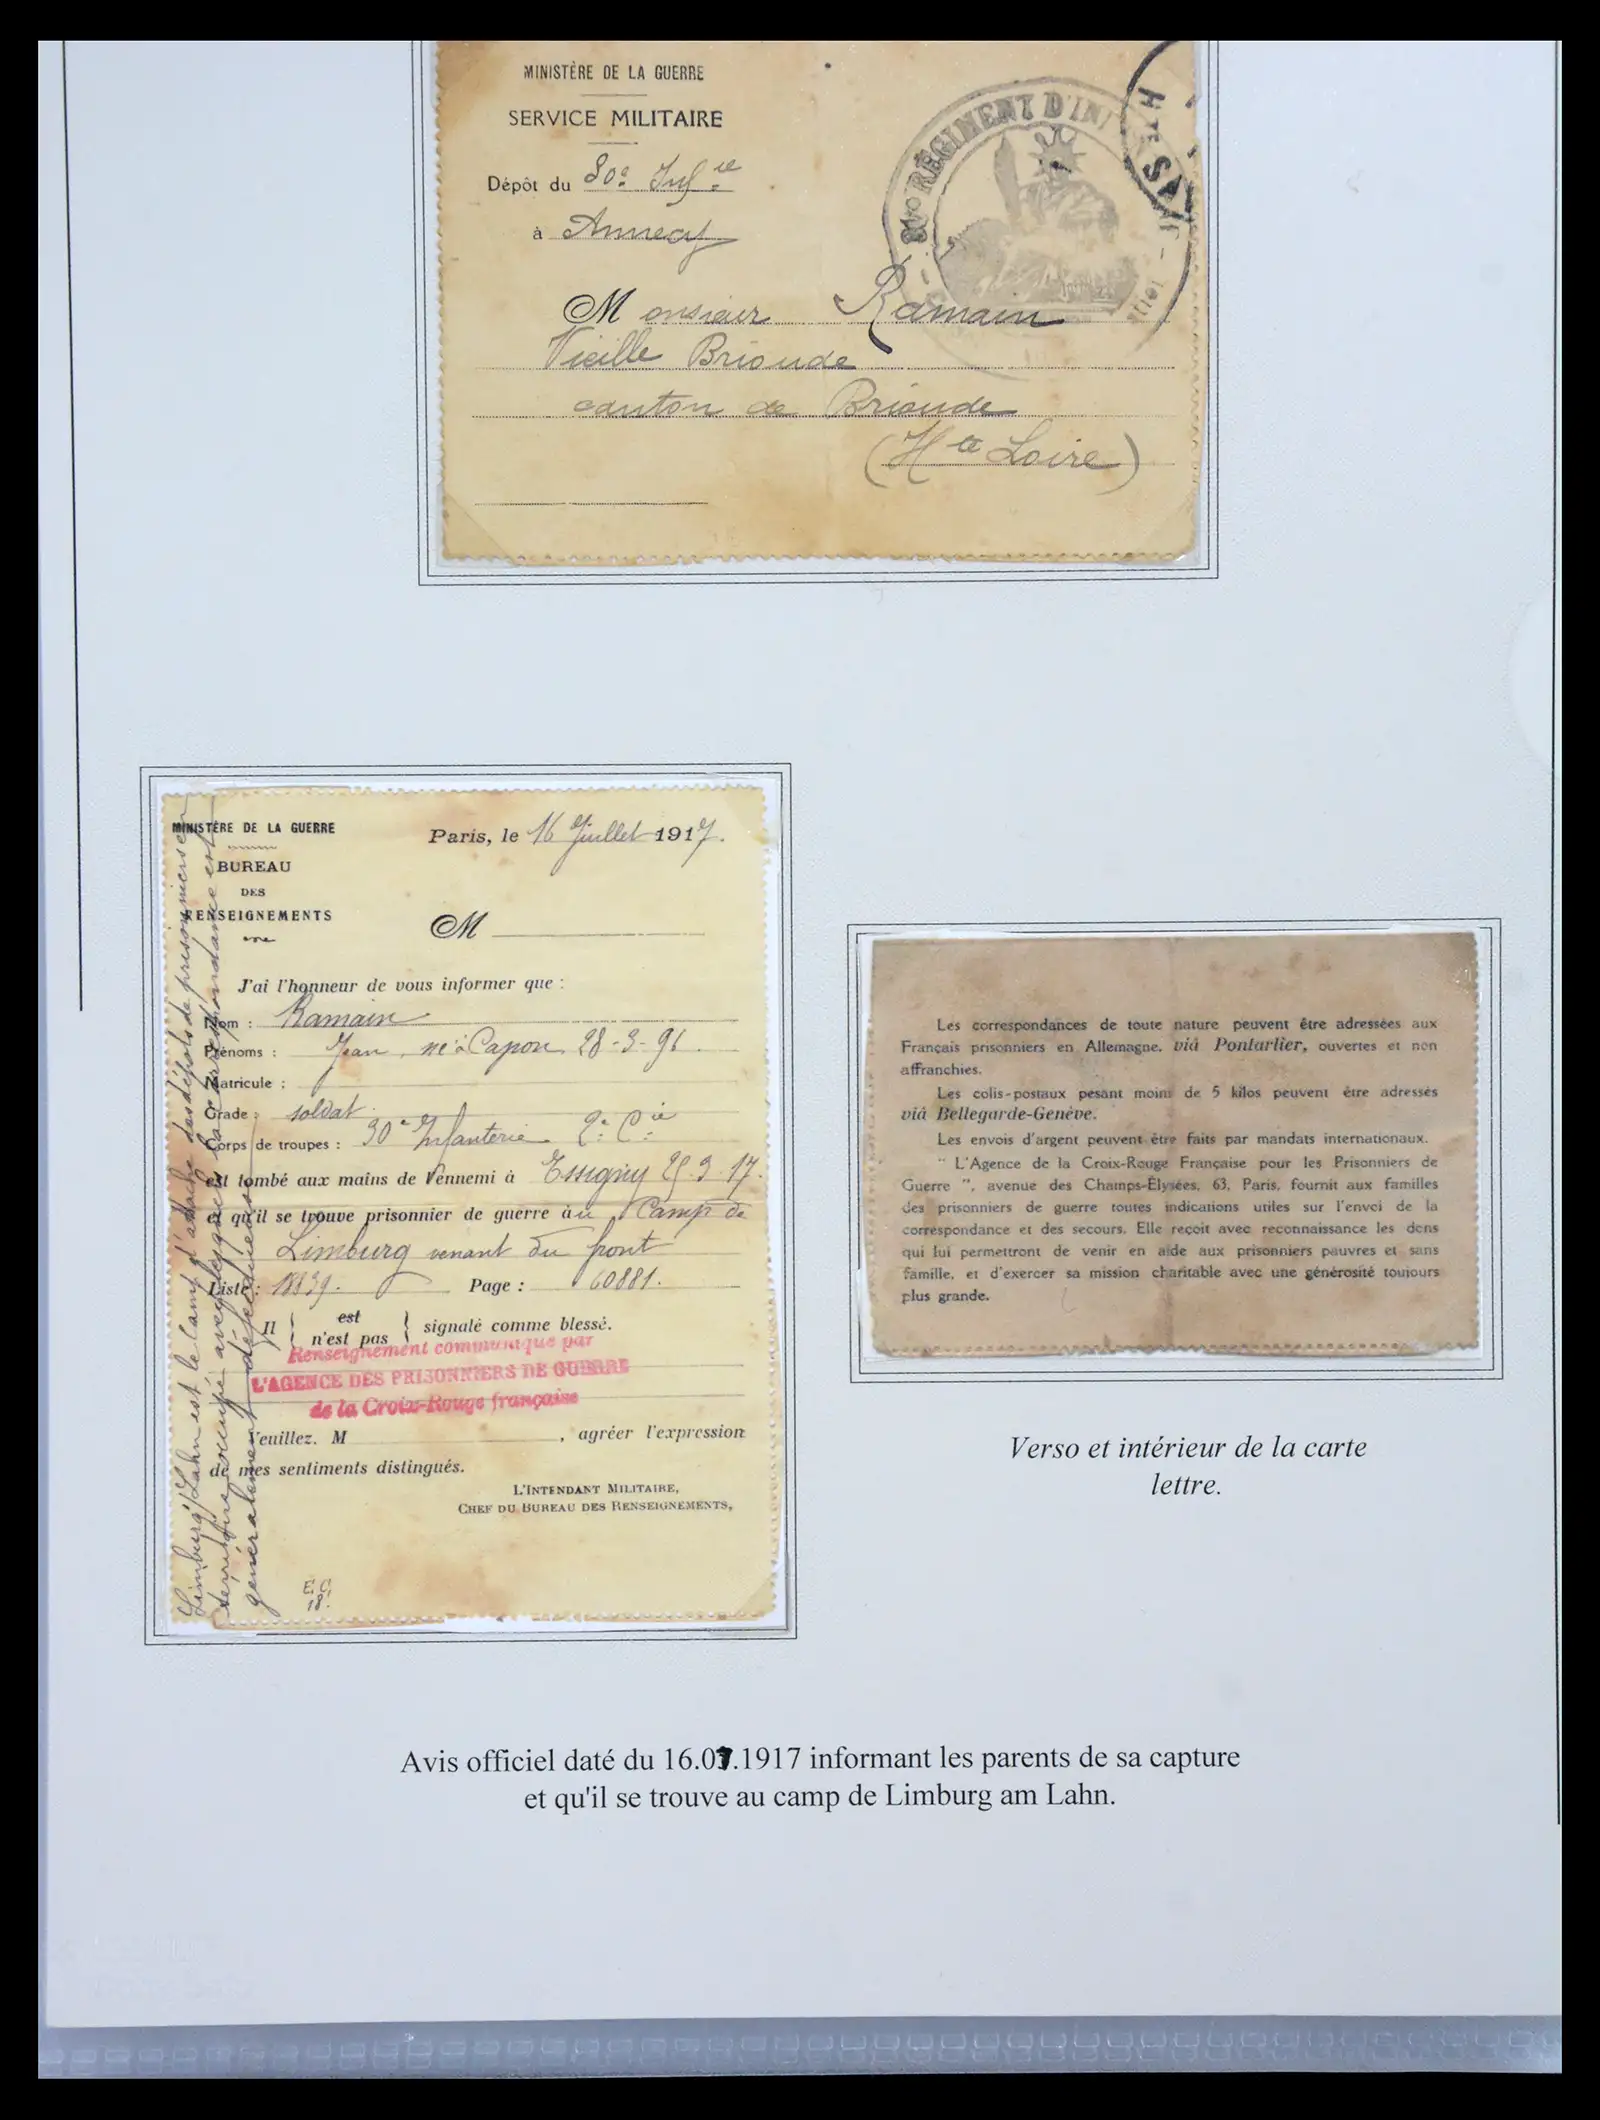 MINISTÈRE DE LA GUERRE
SERVICE MILITAIRE
Dépôt du 30e Inf.ie
à Annecy
RÉGIMENT D'IN
Hte SA
Monsieur Ramain
Vieille Brioude
canton de Brioude
(Hte Loire)
MINISTÈRE DE LA GUERRE
BUREAU
DES
RENSEIGNEMENTS
Paris, le 16 Juillet 1917.
M
J'ai l'honneur de vous informer que :
Nom : Ramain
Prénoms : Jean, né à Capon 28-3-96.
Matricule :
Grade : soldat
Corps de troupes : 30e Infanterie 2e Cie
est tombé aux mains de l'ennemi à Essigny 25-3-17.
et qu'il se trouve prisonnier de guerre au Camp de
Limburg venant du front
Liste : 18839. Page : 60881.
Il { est
n'est pas } signalé comme blessé.
Renseignement communiqué par
L'AGENCE DES PRISONNIERS DE GUERRE
de la Croix-Rouge française
Veuillez, M , agréer l'expression
de mes sentiments distingués.
L'INTENDANT MILITAIRE,
CHEF DU BUREAU DES RENSEIGNEMENTS,
E.C.
18.
Limburg/Lahn est le camp d'attache des dépôts de prisonniers en
territoire occupé avec lesquels la correspondance est
généralement défectueuse
Les correspondances de toute nature peuvent être adressées aux
Français prisonniers en Allemagne, viâ Pontarlier, ouvertes et non
affranchies.
Les colis-postaux pesant moins de 5 kilos peuvent être adressés
viâ Bellegarde-Genève.
Les envois d'argent peuvent être faits par mandats internationaux.
" L'Agence de la Croix-Rouge Française pour les Prisonniers de
Guerre ", avenue des Champs-Élysées, 63, Paris, fournit aux familles
des prisonniers de guerre toutes indications utiles sur l'envoi de la
correspondance et des secours. Elle reçoit avec reconnaissance les dons
qui lui permettront de venir en aide aux prisonniers pauvres et sans
famille, et d'exercer sa mission charitable avec une générosité toujours
plus grande.
Verso et intérieur de la carte
lettre.
Avis officiel daté du 16.07.1917 informant les parents de sa capture
et qu'il se trouve au camp de Limburg am Lahn.